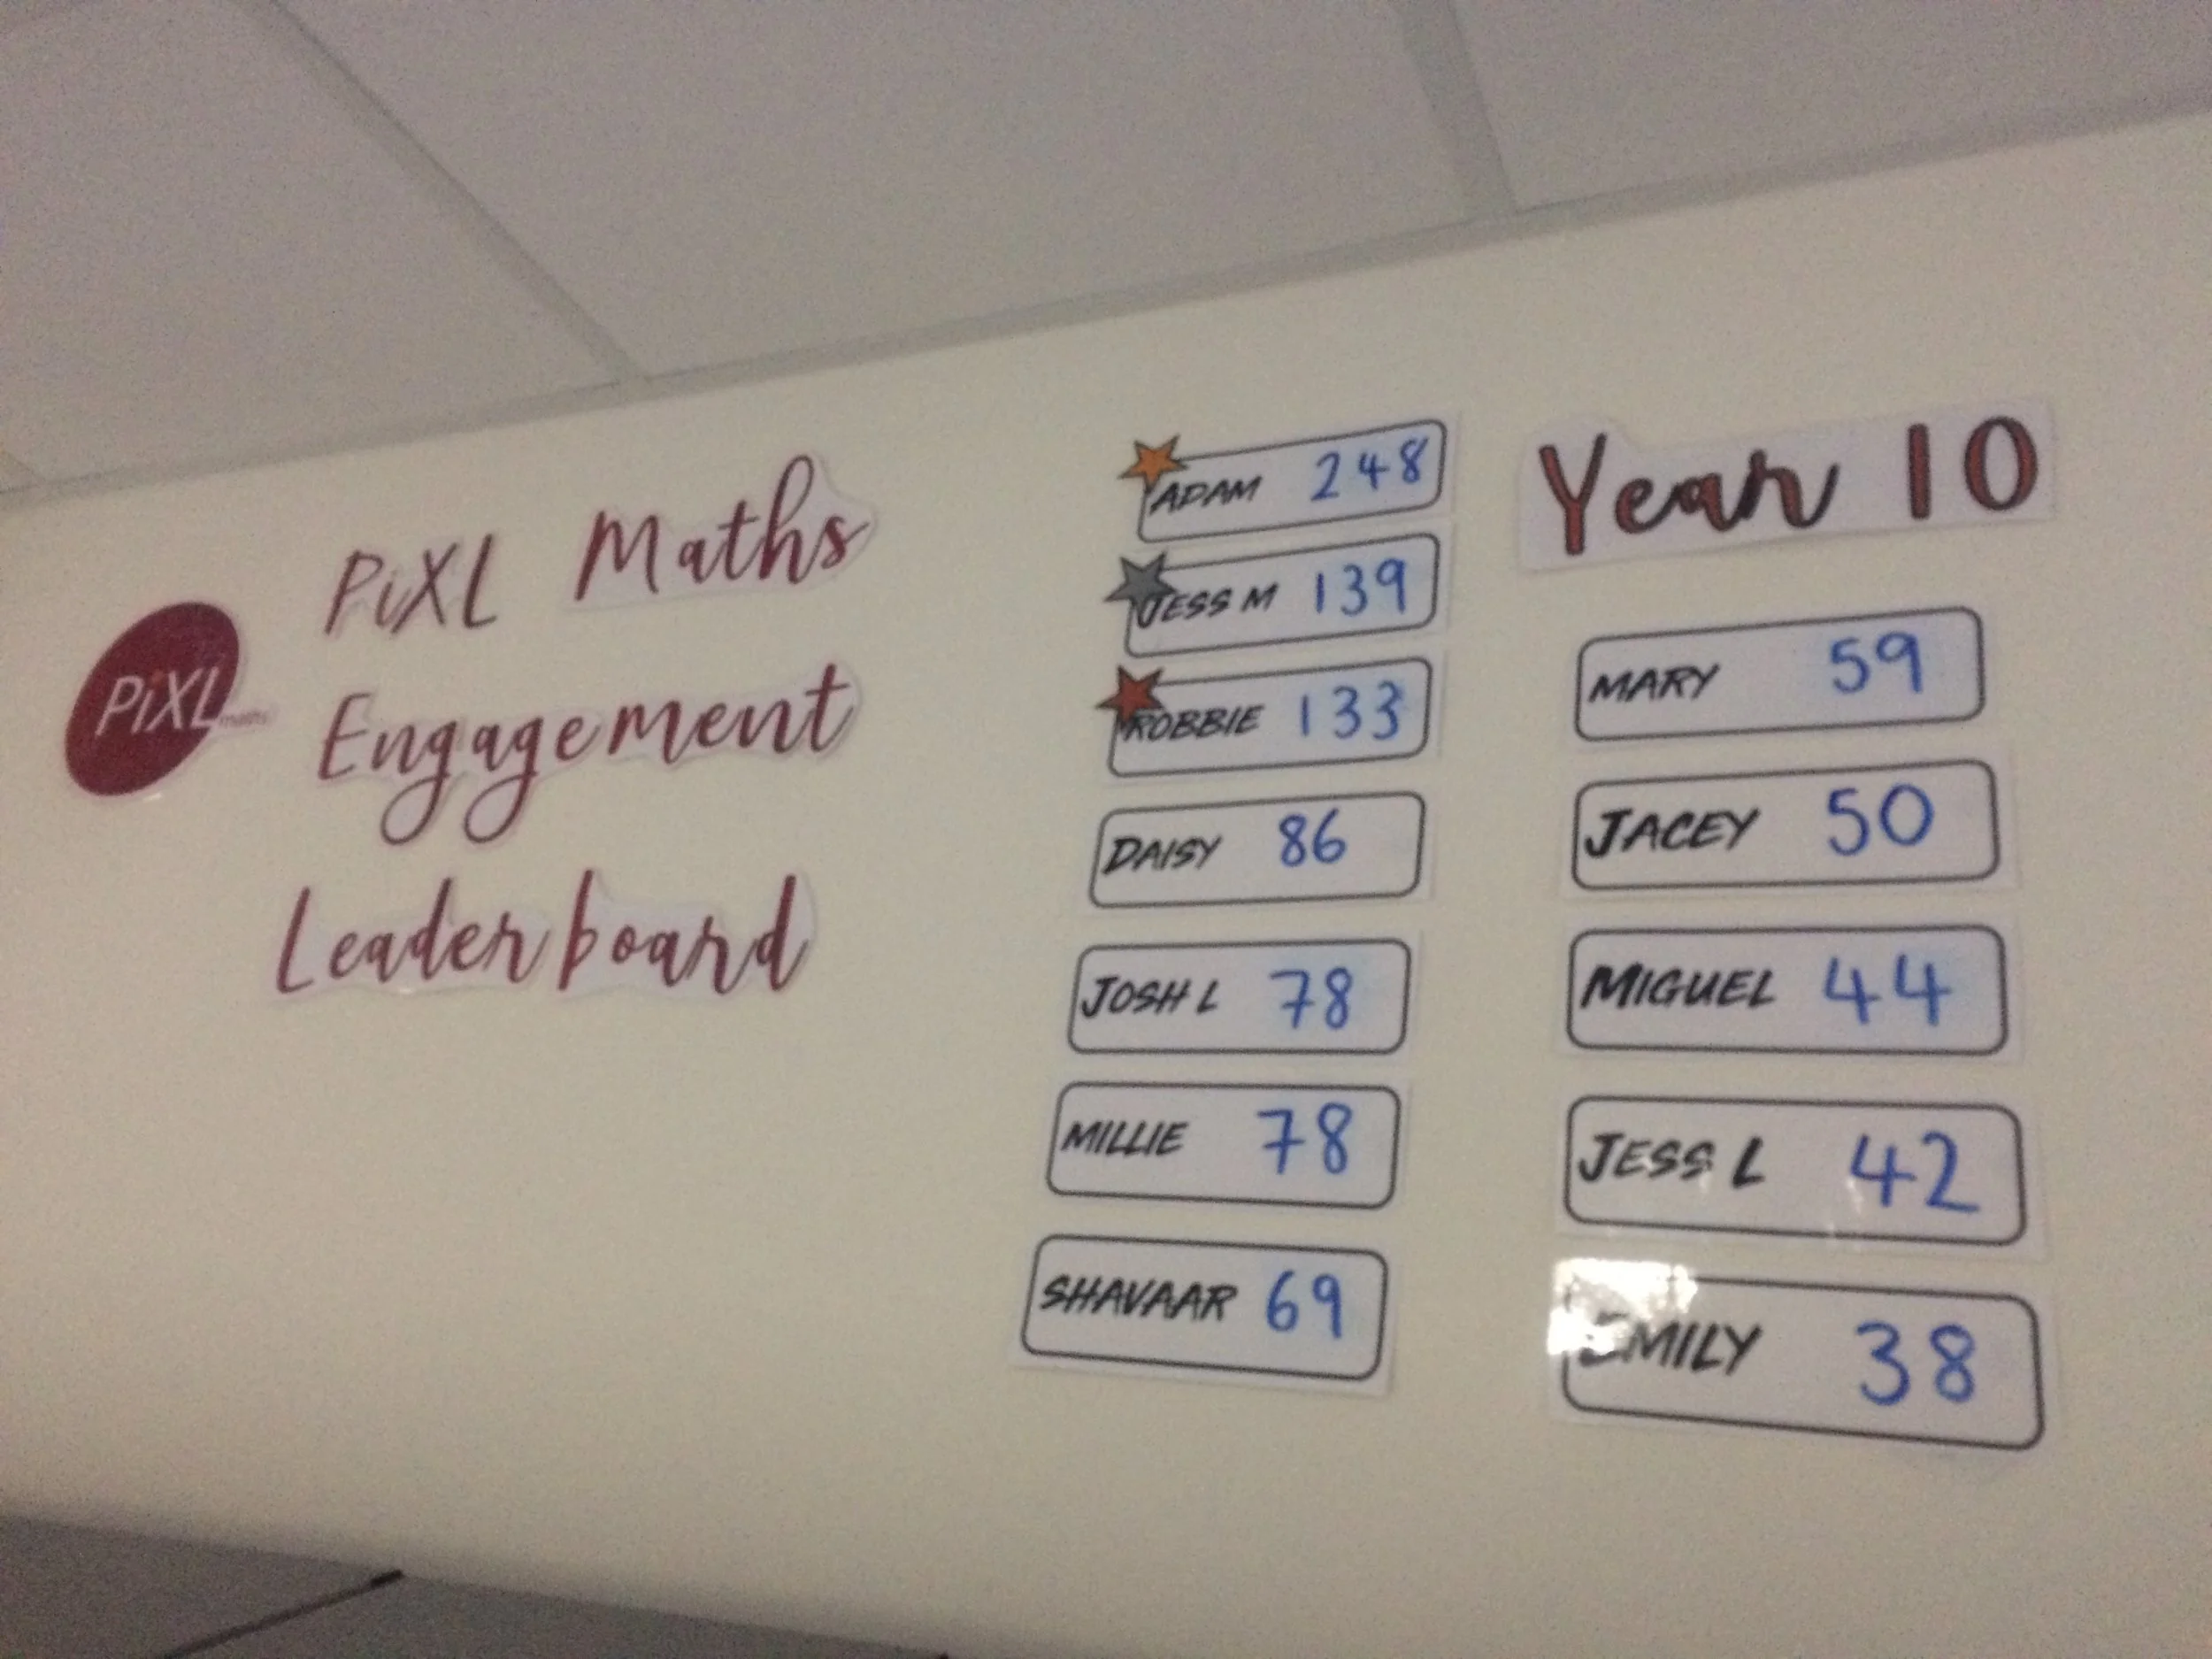 PiXL
maths
PiXL Maths
Engagement
Leaderboard
ADAM 248
JESS M 139
ROBBIE 133
DAISY 86
JOSH L 78
MILLIE 78
SHAVAAR 69
Year 10
MARY 59
JACEY 50
MIGUEL 44
JESS L 42
EMILY 38